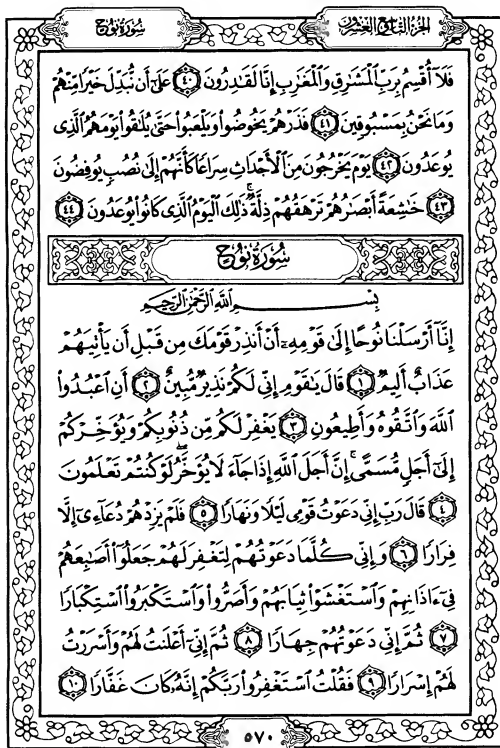 الجزء التاسع والعشرون
سورة نوح
فَلَا أُقْسِمُ بِرَبِّ الْمَشَارِقِ وَالْمَغَارِبِ إِنَّا لَقَادِرُونَ ﴿٤٠﴾ عَلَىٰ أَن نُّبَدِّلَ خَيْرًا مِّنْهُمْ
وَمَا نَحْنُ بِمَسْبُوقِينَ ﴿٤١﴾ فَذَرْهُمْ يَخُوضُوا وَيَلْعَبُوا حَتَّىٰ يُلَاقُوا يَوْمَهُمُ الَّذِي
يُوعَدُونَ ﴿٤٢﴾ يَوْمَ يَخْرُجُونَ مِنَ الْأَجْدَاثِ سِرَاعًا كَأَنَّهُمْ إِلَىٰ نُصُبٍ يُوفِضُونَ
﴿٤٣﴾ خَاشِعَةً أَبْصَارُهُمْ تَرْهَقُهُمْ ذِلَّةٌ ۚ ذَٰلِكَ الْيَوْمُ الَّذِي كَانُوا يُوعَدُونَ ﴿٤٤﴾
سُورَةُ نُوحٍ
بِسْمِ اللَّهِ الرَّحْمَٰنِ الرَّحِيمِ
إِنَّا أَرْسَلْنَا نُوحًا إِلَىٰ قَوْمِهِ أَنْ أَنذِرْ قَوْمَكَ مِن قَبْلِ أَن يَأْتِيَهُمْ
عَذَابٌ أَلِيمٌ ﴿١﴾ قَالَ يَا قَوْمِ إِنِّي لَكُمْ نَذِيرٌ مُّبِينٌ ﴿٢﴾ أَنِ اعْبُدُوا
اللَّهَ وَاتَّقُوهُ وَأَطِيعُونِ ﴿٣﴾ يَغْفِرْ لَكُم مِّن ذُنُوبِكُمْ وَيُؤَخِّرْكُمْ
إِلَىٰ أَجَلٍ مُّسَمًّى ۚ إِنَّ أَجَلَ اللَّهِ إِذَا جَاءَ لَا يُؤَخَّرُ ۖ لَوْ كُنتُمْ تَعْلَمُونَ
﴿٤﴾ قَالَ رَبِّ إِنِّي دَعَوْتُ قَوْمِي لَيْلًا وَنَهَارًا ﴿٥﴾ فَلَمْ يَزِدْهُمْ دُعَائِي إِلَّا
فِرَارًا ﴿٦﴾ وَإِنِّي كُلَّمَا دَعَوْتُهُمْ لِتَغْفِرَ لَهُمْ جَعَلُوا أَصَابِعَهُمْ
فِي آذَانِهِمْ وَاسْتَغْشَوْا ثِيَابَهُمْ وَأَصَرُّوا وَاسْتَكْبَرُوا اسْتِكْبَارًا
﴿٧﴾ ثُمَّ إِنِّي دَعَوْتُهُمْ جِهَارًا ﴿٨﴾ ثُمَّ إِنِّي أَعْلَنتُ لَهُمْ وَأَسْرَرْتُ
لَهُمْ إِسْرَارًا ﴿٩﴾ فَقُلْتُ اسْتَغْفِرُوا رَبَّكُمْ إِنَّهُ كَانَ غَفَّارًا ﴿١٠﴾
٥٧٠